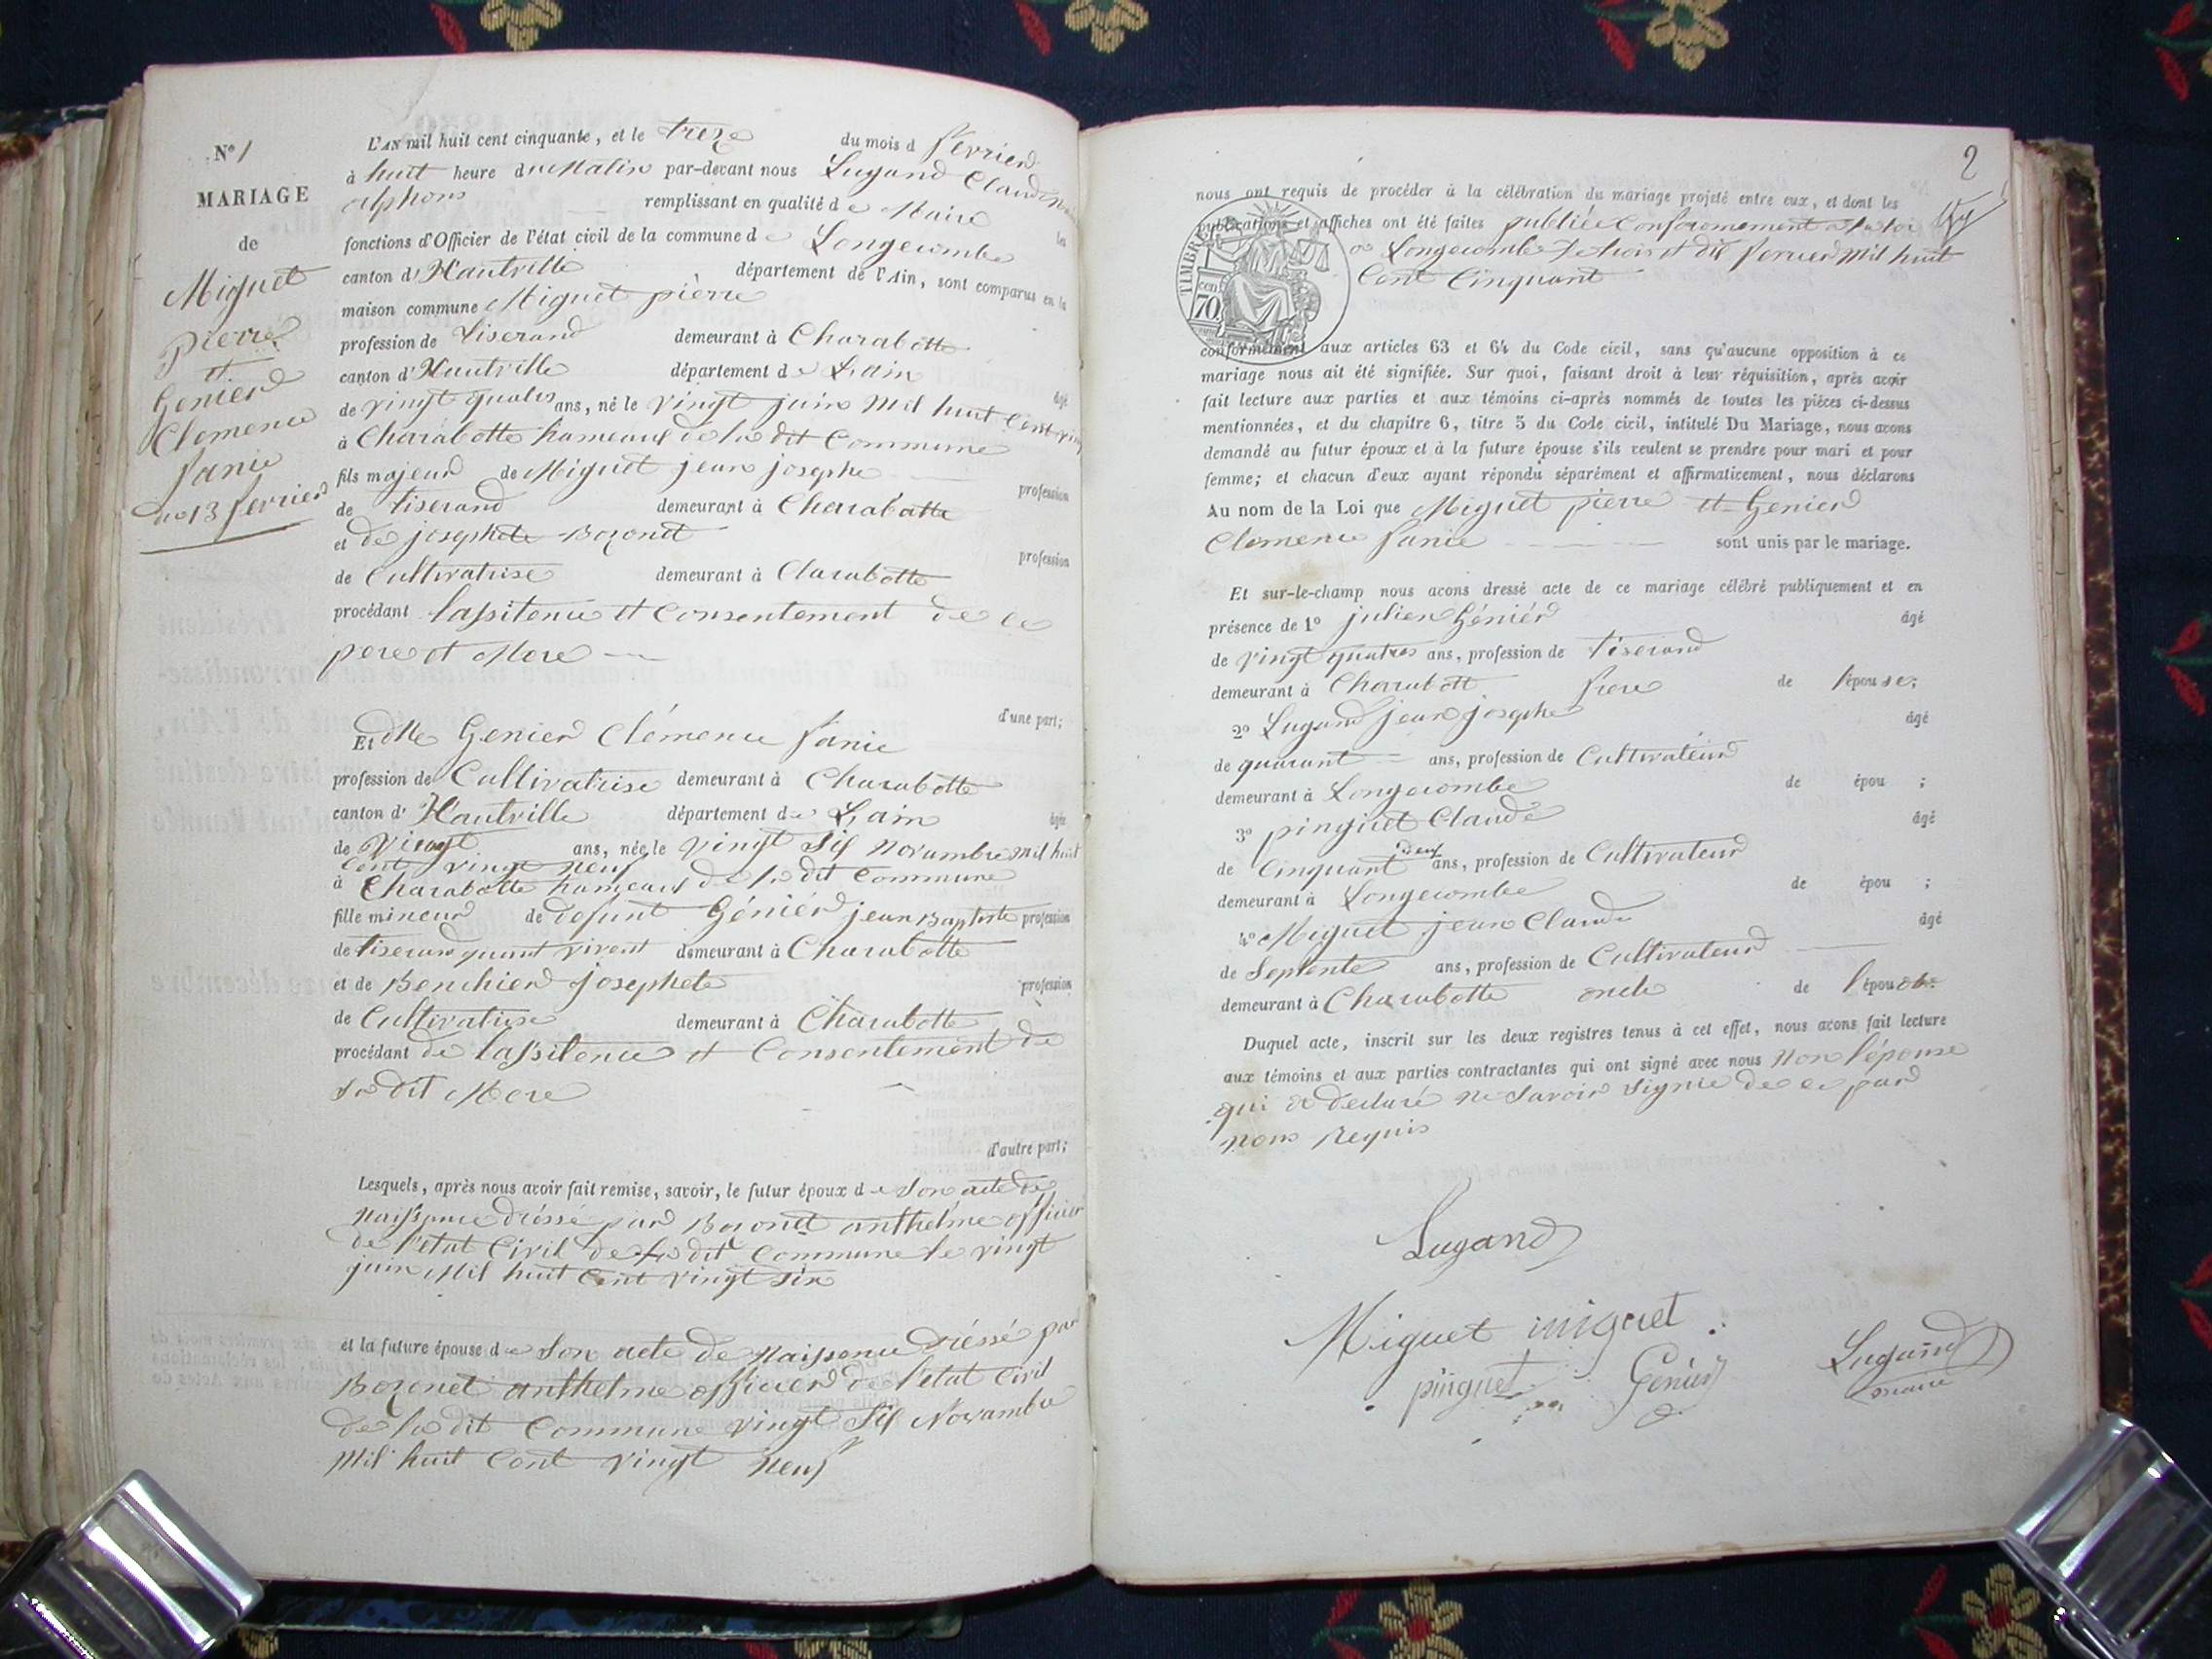 N° 1
MARIAGE
de
Miguet
pierre
et
Genier
Clemence
fanie
du 13 fevrier
L'AN mil huit cent cinquante, et le treze du mois d fevrier
à huit heure du Matin par-devant nous Lugand Claude
alphons remplissant en qualité de Maire les
fonctions d'Officier de l'état civil de la commune de Longecombe
canton d'Hautville département de l'Ain, sont comparus en la
maison commune Miguet pierre
profession de tiserand demeurant à Charabotte
canton d'Hautville département de Lain âgé
de vingt quatres ans, né le vingt juin mil huit cent ving
à Charabotte hameaux de la dit Commune
fils majeur de Miguet jean josephe profession
de tiserand demeurant à Charabatte
et de josephete Bozonet profession
de Cultivatrise demeurant à Clarabotte
procédant lassitence et Consentement de ce
pere et Mere
d'une part;
Et Mlle Genier Clémence fanie
profession de Cultivatrise demeurant à Charabotte
canton d'Hautville département de Lain âgée
de Vingt ans, née le vingt sif novambre mil huit
cent vingt neuf
à Charabotte hameaux de la dit Commune
fille mineur de defunt Géniér jean Baptiste profession
de tiserand quant vivent demeurant à Charabotte
et de Benchier josephete profession
de Cultivatrise demeurant à Charabotte
procédant de lassitence et Consentement de
sa dit Mere
d'autre part;
Lesquels, après nous avoir fait remise, savoir, le futur époux de son acte de
naissance dréssé par Bozonet anthelme officier
de l'état Civil de la dit Commune le vingt
juin Mil huit Cent vingt six
et la future épouse de son acte de naissence dréssé par
Bozonet anthelme officier de l'etat Civil
de la dit Commune vingt sif Novambre
mil huit Cent vingt neuf
2
nous ont requis de procéder à la célébration du mariage projeté entre eux, et dont les
publications et affiches ont été faites publiée Conformement a la loi
a Longecombe le trois et dif fevrier mil huit
Cent Cinquant
TIMBRE
cen
70
conformément aux articles 63 et 64 du Code civil, sans qu'aucune opposition à ce
mariage nous ait été signifiée. Sur quoi, faisant droit à leur réquisition, après avoir
fait lecture aux parties et aux témoins ci-après nommés de toutes les pièces ci-dessus
mentionnées, et du chapitre 6, titre 5 du Code civil, intitulé Du Mariage, nous avons
demandé au futur époux et à la future épouse s'ils veulent se prendre pour mari et pour
femme; et chacun d'eux ayant répondu séparément et affirmativement, nous déclarons
Au nom de la Loi que Miguet pierre et Genier
Clemence fanie sont unis par le mariage.
Et sur-le-champ nous avons dressé acte de ce mariage célébré publiquement et en
présence de 1° julien Géniér âgé
de vingt quatres ans, profession de tiserand
demeurant à Charabott frere de l'épouse;
2° Lugand jean josephe âgé
de quarant ans, profession de Cultivateur
demeurant à Longecombe de épou ;
3° pinguet Claude âgé
de Cinquant deux ans, profession de Cultivateur
demeurant à Longecombe de épou ;
4° Miguet jean Claude âgé
de Septente ans, profession de Cultivateur
demeurant à Charabotte oncle de l'épou
Duquel acte, inscrit sur les deux registres tenus à cet effet, nous avons fait lecture
aux témoins et aux parties contractantes qui ont signé avec nous non l'épouse
qui a declaré ne savoir signie de ce par
nous Requis
Lugand
Miguet miguet
pinguet Génier Lugand
maire